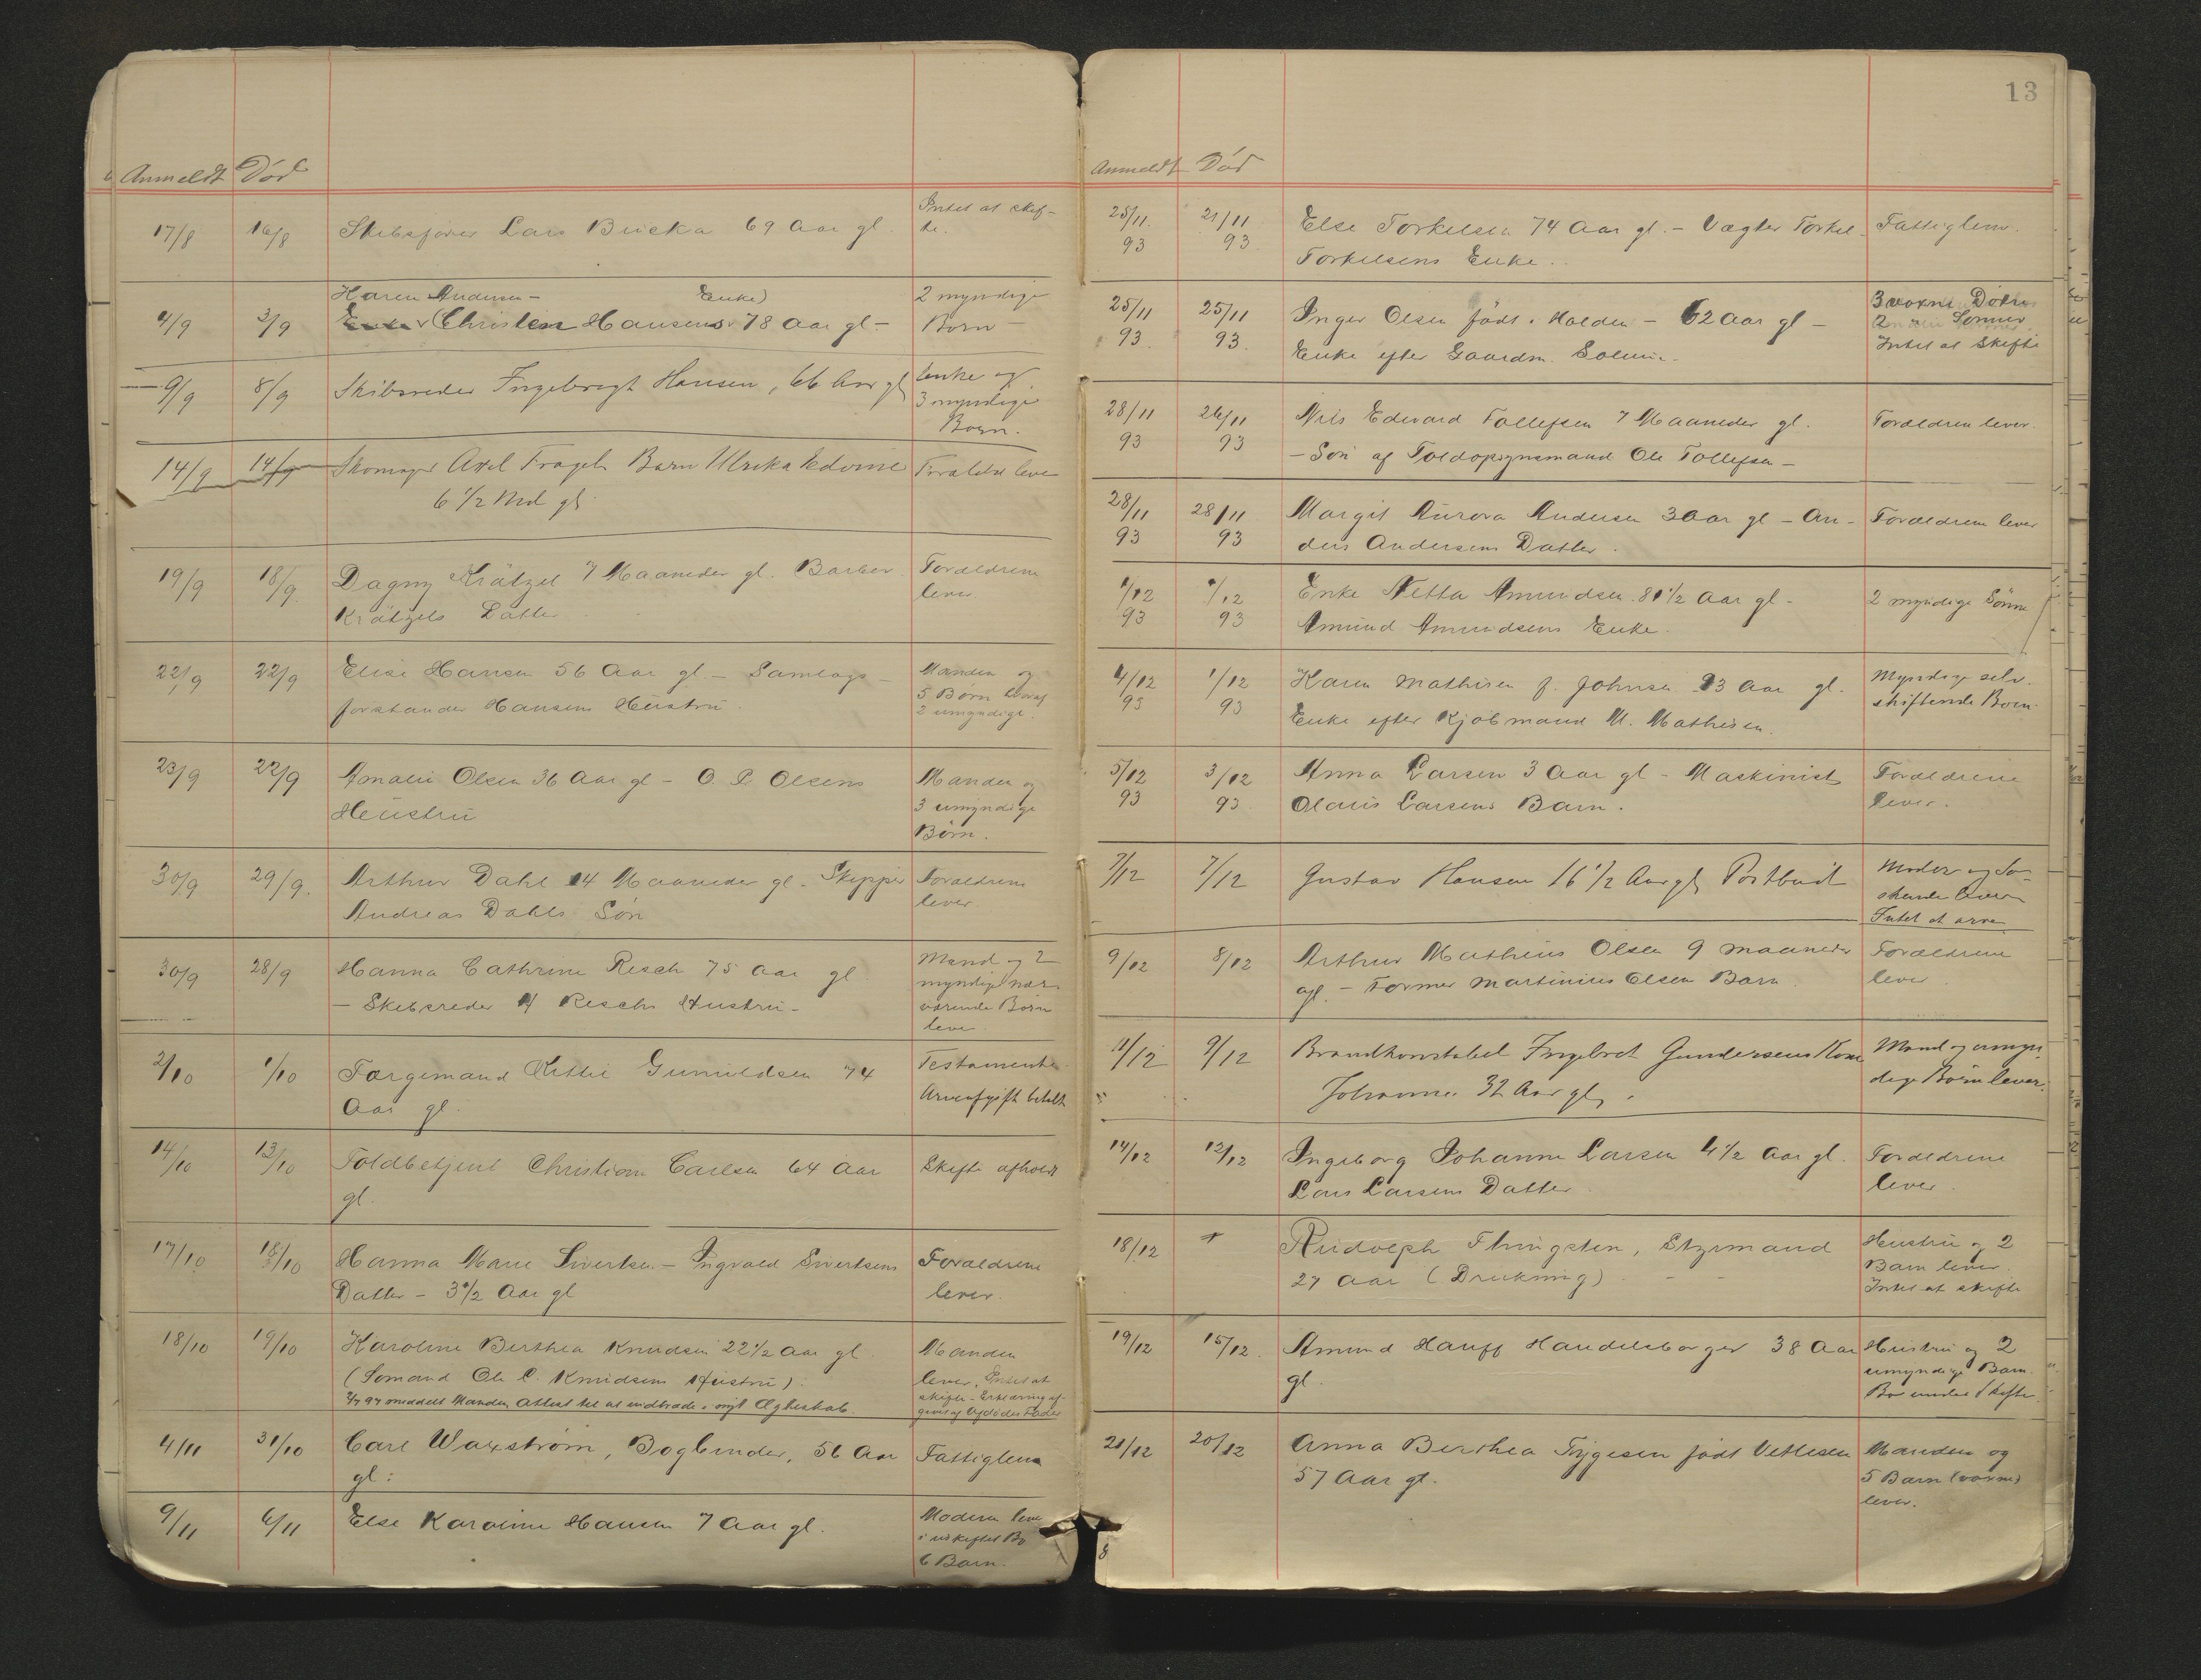 Anmeldt Död
17/8 16/8 Skibsfører Lars Bricka 69 Aar gl. Intet at skif-
te.
Karen Andersen - Enke)
4/9 3/9 (Christen Hansens 78 Aar gl - 2 myndige
Børn -
9/9 8/9 Skibsreder Ingebregt Hansen, 66 Aar gl Enke og
3 myndige
Børn.
14/9 14/9 Skomager Axel Fragels Barn Ulrika Edvine Forældre leve
6 1/2 Md gl.
19/9 18/9 Dagny Krätzel 7 Maaneder gl. Barber Forældrene
Krätzels Datter lever
22/9 22/9 Elise Hansen 56 Aar gl. - Samlags- Manden og
forstander Hansens Hustru. 5 Børn hvoraf
2 umyndige.
23/9 22/9 Amalie Olsen 36 Aar gl - O P Olsens Manden og
Hustru 3 umyndige
Börn.
30/9 29/9. Arthur Dahl 14 Maaneder gl. Skipper Forældrene
Andreas Dahls Sön lever
30/9 28/9 Hanna Cathrine Resch 75 Aar gl Mand og 2
- Skibsreder Reschs Hustru - myndige nær-
værende Börn
leve
2/10 1/10 Færgemand Kittil Gunuldsen 74 Testamente
Aar gl. Arveafgift betalt
14/10 13/10 Toldbetjent Christian Carlsen 64 Aar Skifte afholdt
gl.
17/10 15/10 Hanna Marie Sivertsen - Ingvald Sivertsens Forældrene
Datter - 3 1/2 Aar gl lever.
18/10 19/10 Karoline Berthea Knudsen 22 1/2 Aar gl. Manden
(Sömand Ole C. Knudsens Hustru). lever. Intet at
skifte - Erklæring af-
meddelt Manden Attest til at indtræde i nyt Ægteskab. givet af Afdödes Fader
4/11 31/10 Carl Waxström, Bogbinder, 56 Aar Fattiglem
gl:
9/11 6/11 Else Karoline Hansen 7 Aar gl. Moderen lever
i uskiftet Bo
6 Barn.
13
Anmeldt Död
25/11 93 21/11 93 Else Torkelsen 74 Aar gl. - Vægter Torkel Fattiglem.
Torkelsens Enke.
25/11 93. 25/11 93. Inger Olsen födt i Halden - 62 Aar gl - 3 voxne Dötre
2 Sönner
Enke efter Gaardm. Intet at Skifte
28/11 93 26/11 93 Nils Edvard Tollefsen 7 Maaneder gl. Forældren lever.
- Sön af Toldopsynsmand Ole Tollefsen -
28/11 93 28/11 93 Margit Aurora Andersen 3 Aar gl - An- Forældrene lever
ders Andersens Datter.
1/12 93 1/12 93 Enke Netta Amundsen 81 1/2 Aar gl - 2 myndige Sönne
Amund Amundsens Enke.
4/12 93 1/12 93 Karen Mathisen f. Johnsen 83 Aar gl. Myndige selv-
Enke efter Kjöbmand M. Mathisen. skiftende Börn.
5/12 93 3/12 93. Anna Larsen 3 Aar gl - Maskinist Forældrene
Olaus Larsens Barn. lever.
7/12 7/12 Gustav Hansen 16 1/2 Aar gl Postbud Moder og Sö-
skende lever
Intet at arve
9/12 8/12 Arthur Mathius Olsen 9 maaneder Forældrene
gl. - Former Martinius Olsen Barn. lever
11/12 9/12 Brandkonstabel Ingebret Gundersens Kone Mand og umyn-
Johanne 32 Aar gl. dige Börn lever.
14/12 12/12 Ingeborg Johanne Larsen 4 1/2 Aar gl. Forældrene
Lars Larsens Datter lever.
18/12 Rudolph Thingsten, Styrmand Hustru og 2
27 Aar (Drukning) - - Barn lever.
Intet at skifte
19/12 15/12. Amund Hauff Handelsborger 38 Aar Hustru og 2
gl. umyndige Barn.
Bo under Skifte.
21/12 20/12 Anna Berthea Trygesen födt Vetlesen Manden og
57 Aar gl. 5 Barn (voxne)
lever.
8